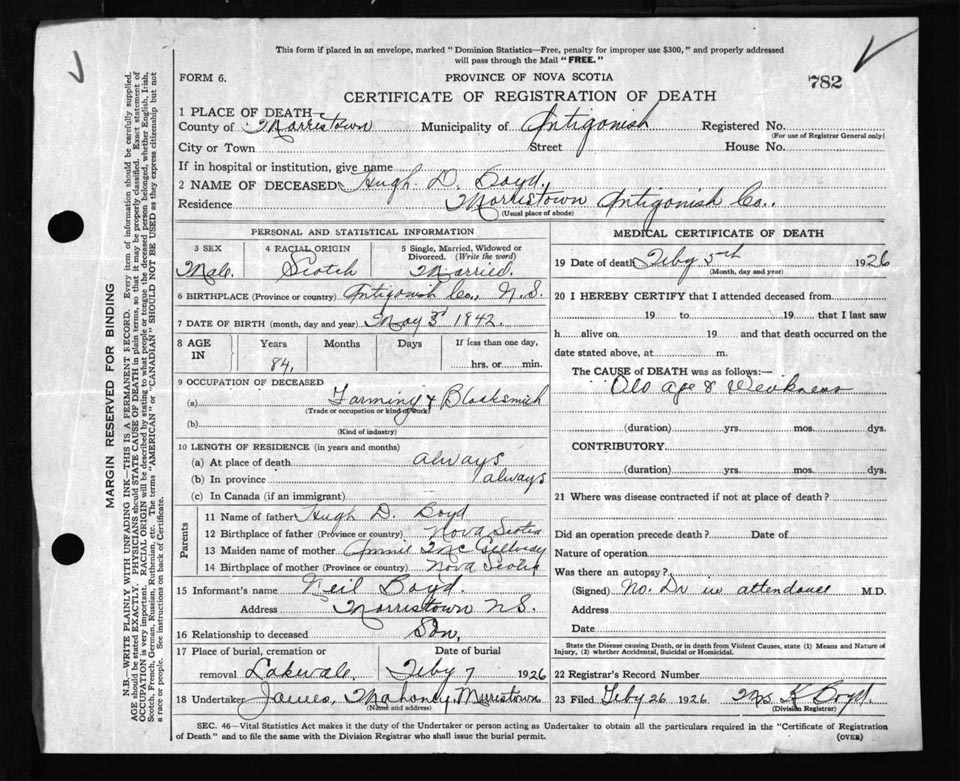 This form if placed in an envelope, marked "Dominion Statistics—Free, penalty for improper use $300," and properly addressed
will pass through the Mail "FREE."
FORM 6.
PROVINCE OF NOVA SCOTIA
782
CERTIFICATE OF REGISTRATION OF DEATH
1 PLACE OF DEATH—
County of Morristown Municipality of Antigonish Registered No.
(For use of Registrar General only)
City or Town Street House No.
If in hospital or institution, give name
2 NAME OF DECEASED Hugh D. Boyd,
Residence Morristown Antigonish Co.,
(Usual place of abode)
PERSONAL AND STATISTICAL INFORMATION
3 SEX 4 RACIAL ORIGIN 5 Single, Married, Widowed or Divorced. (Write the word)
Male. Scotch Married.
6 BIRTHPLACE (Province or country) Antigonish Co., N.S.
7 DATE OF BIRTH (month, day and year) May 3rd 1842.
8 AGE IN Years Months Days If less than one day,
84, hrs. or min.
9 OCCUPATION OF DECEASED
(a) Farming & Blacksmith
(Trade or occupation or kind of work)
(b)
(Kind of industry)
10 LENGTH OF RESIDENCE (in years and months)
(a) At place of death always
(b) In province always
(c) In Canada (if an immigrant)
Parents
11 Name of father Hugh D. Boyd
12 Birthplace of father (Province or country) Nova Scotia
13 Maiden name of mother Annie McGillvay
14 Birthplace of mother (Province or country) Nova Scotia
15 Informant's name Neil Boyd.
Address Morristown NS.
16 Relationship to deceased Son,
17 Place of burial, cremation or Date of burial
removal Lakevale. Feby 7 1926
18 Undertaker James, Mahoney, Morristown
(Name and address)
MEDICAL CERTIFICATE OF DEATH
19 Date of death Feby 5th 1926
(Month, day and year)
20 I HEREBY CERTIFY that I attended deceased from
19 to 19 that I last saw
h alive on 19 and that death occurred on the
date stated above, at m.
The CAUSE of DEATH was as follows:—
Old age & Weakness
(duration) yrs. mos. dys.
CONTRIBUTORY
(duration) yrs. mos. dys.
21 Where was disease contracted if not at place of death?
Did an operation precede death? Date of
Nature of operation
Was there an autopsy?
(Signed) No. Dr in attendance M.D.
Address
Date
State the Disease causing Death, or in death from Violent Causes, state (1) Means and Nature of
Injury, (2) whether Accidental, Suicidal or Homicidal.
22 Registrar's Record Number
23 Filed Feby 26 1926 Mrs K Boyd.
(Division Registrar)
SEC. 46—Vital Statistics Act makes it the duty of the Undertaker or person acting as Undertaker to obtain all the particulars required in the "Certificate of Registration
of Death" and to file the same with the Division Registrar who shall issue the burial permit.
(OVER)
MARGIN RESERVED FOR BINDING
N.B.—WRITE PLAINLY WITH UNFADING INK—THIS IS A PERMANENT RECORD. Every item of information should be carefully supplied.
AGE should be stated EXACTLY. PHYSICIANS should STATE CAUSE OF DEATH in plain terms, so that it may be properly classified. Exact statement of
OCCUPATION is very important. RACIAL ORIGIN will be described by stating to what people or tongue the deceased person belonged, whether English, Irish,
Scotch, French, German, Russian, Ruthenian, etc. The terms "AMERICAN" or "CANADIAN" SHOULD NOT BE USED as they express citizenship but not
a race or people. See instructions on back of Certificate.